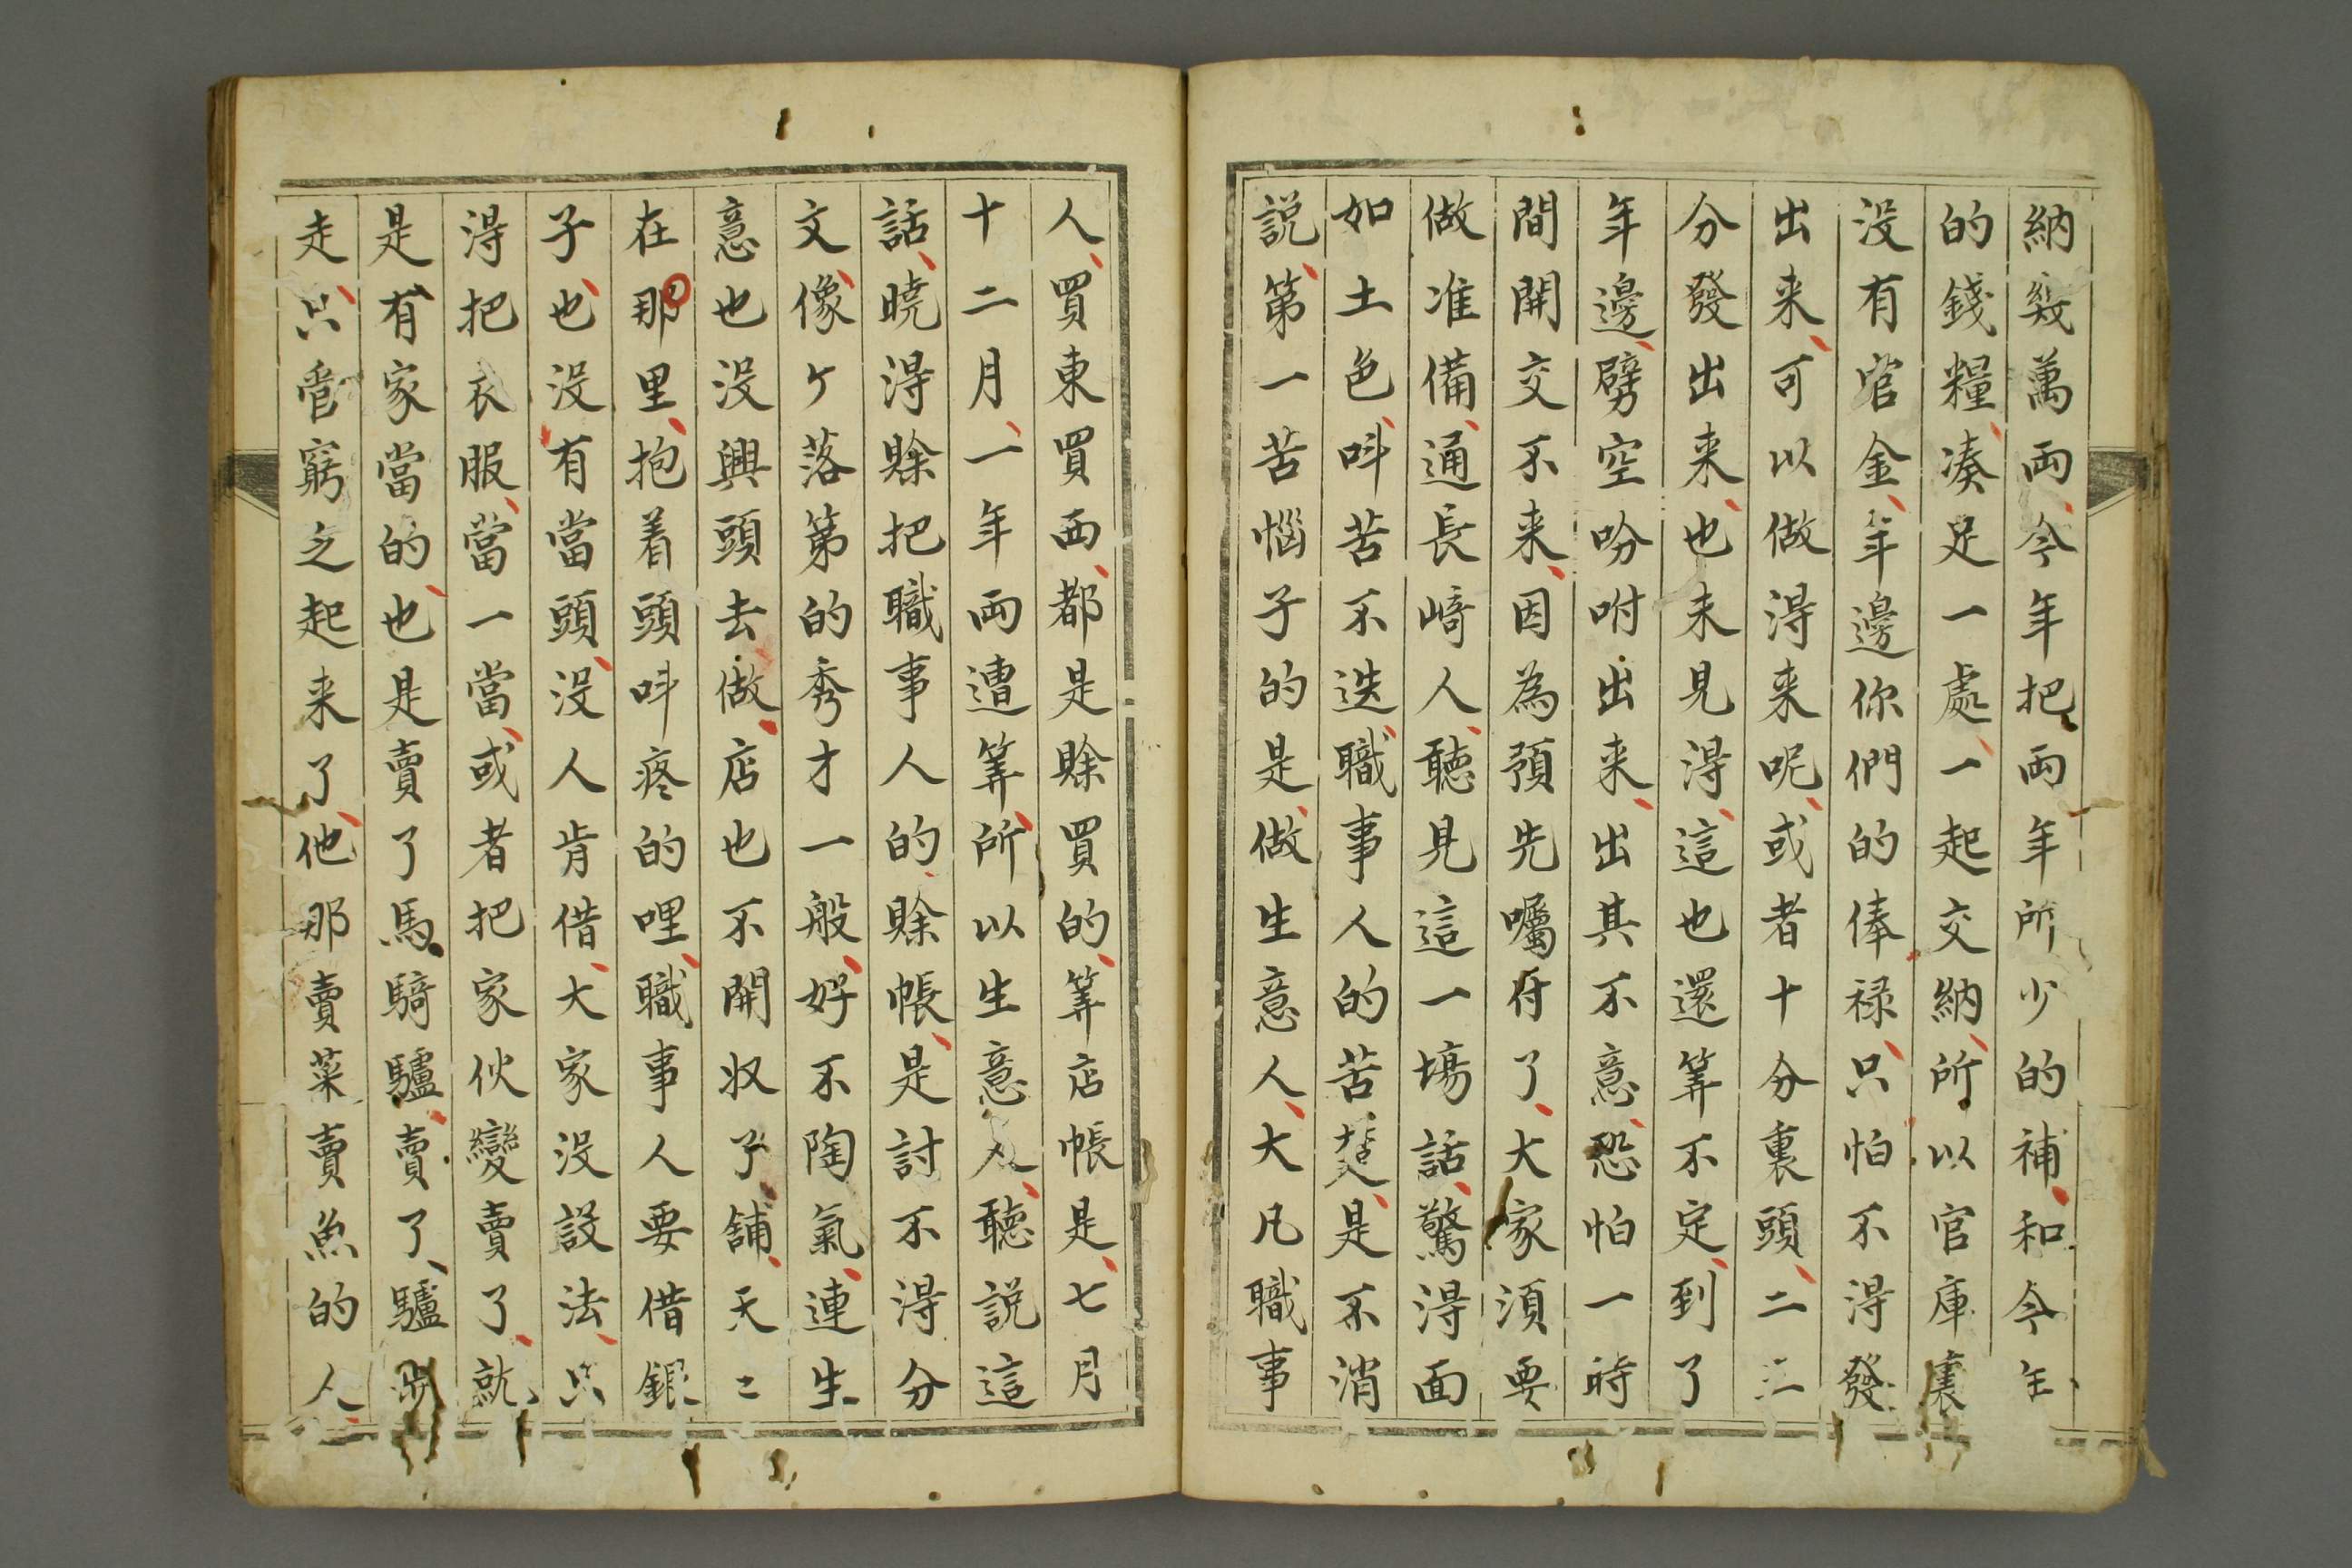 納㡬萬両、今年把両年所少的補、和今年
的錢糧、凑足一處、一起交納、所以官庫裏
没有官金、年邊你們的俸禄、只怕不得發
出来、可以做得来呢、或者十分裏頭、二三
分發出来、也未見得、這也還筭不定、到了
年邊、劈空吩咐出来、出其不意、恐怕一時
間開交不来、因為預先囑付了、大家須要
做准備、通長﨑人、聴見這一塲話、驚得面
如土色、呌苦不迭、職事人的苦楚、是不消
説、第一苦惱子的是、做生意人、大凡職事
人、買東買西、都是賖買的、筭店帳是、七月
十二月、一年両遭筭、所以生意人、聴説這
話、曉得賖把職事人的、賖帳、是討不得分
文、像ケ落第的秀才一般、好不陶氣、連生
意也没興頭去做、店也不開収了舖、天〻
在那里、抱着頭呌疼的哩、職事人要借銀
子、也没有當頭、没人肯借、大家没設法、只
得把衣服、當一當、或者把家伙變賣了、就
是有家當的、也是賣了馬、騎驢、賣了、驢步
走、只管窮之起来了、他那賣菜賣魚的人、